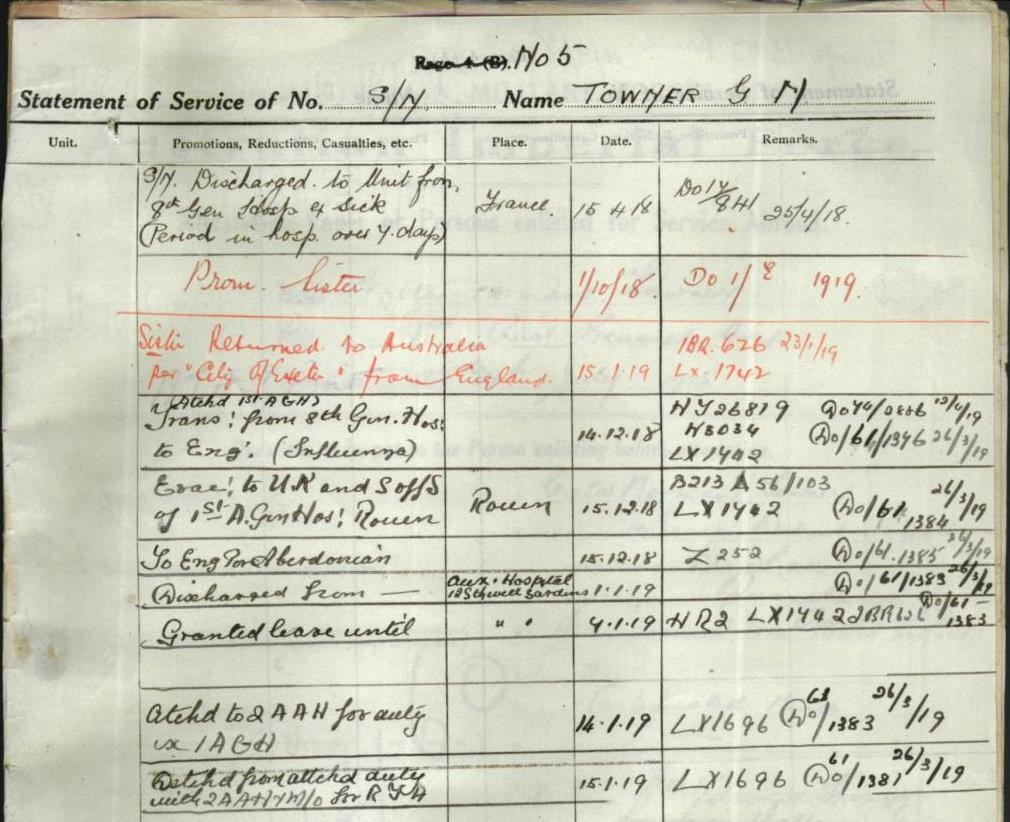 Page 4 (B). No 5
Statement of Service of No. S/N. Name TOWNER G M
Unit. Promotions, Reductions, Casualties, etc. Place. Date. Remarks.
S/N. Discharged to Unit from
8th Gen Hosp ex Sick France. 15 4 18 25/4/18.
(Period in hosp. over 7 days)
Prom. Sister 1/10/18. DO 1/ 1919.
Sister Returned to Australia 1BR. 626 23/1/19
per "City Of Exeter" from England. 15.1.19 LX.1742
(Atchd 1st AGH)
Trans: from 8th Gen. Hos: 14.12.18 NY26819
to Eng: (Influenza) N3034 DO/61/1346 26/3/19
LX1742
Evac: to UK and S off S B213 A 56/103 26/3/19
of 1st A.Gen Hos: Rouen Rouen 15.12.18 LX1742 DO/61 1384
To Eng Per Aberdonian 15.12.18 Z 252 DO/61.1385 26/3/19
Discharged from — Aux. Hospital 1.1.19 DO/61/1383 26/3/19
Gardens
Granted leave until " " 4.1.19 HR2 LX1742 DO/61 – 1383
Atchd to 2 AAH for duty 14.1.19 LX1696 DO/63 1383 26/3/19
ex 1 AGH
Detchd from attchd duty 15.1.19 LX1696 DO/61 1381 26/3/19
with 2AAH & M/O for R T A